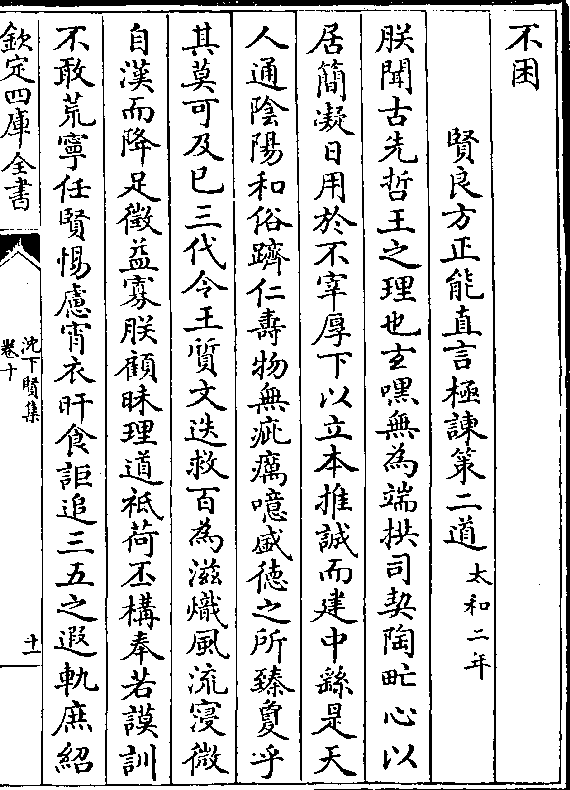 不困
賢良方正能直言極諫策二道太和二年
朕聞古先哲王之理也玄嘿無為端拱司契陶甿心以
居簡凝日用於不宰厚下以立本推誠而建中繇是天
人通陰陽和俗躋仁壽物無疵癘噫盛德之所臻敻乎
其莫可及已三代令王質文迭救百為滋熾風流寖微
自漢而降足徵益寡朕顧昧理道祗荷丕構奉若謨訓
不敢荒寧任賢惕慮宵衣旰食詎追三五之遐軌庶紹
欽定四庫全書
沈下賢集
卷十
十一